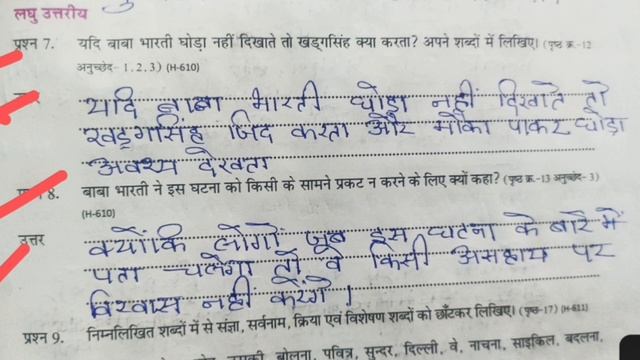 लघु उत्तरीय
प्रश्न 7. यदि बाबा भारती घोड़ा नहीं दिखाते तो खड्गसिंह क्या करता? अपने शब्दों में लिखिए। (पृष्ठ क्र.-12
अनुच्छेद- 1, 2, 3) (H-610)
यदि बाबा भारती घोड़ा नहीं दिखाते तो
खड्गसिंह जिद करता और मौका पाकर घोड़ा
अवश्य देखता
8. बाबा भारती ने इस घटना को किसी के सामने प्रकट न करने के लिए क्यों कहा? (पृष्ठ क्र.-13 अनुच्छेद- 3)
(H-610)
उत्तर क्योंकि लोगों जब इस घटना के बारे में
पता चलेगा तो वे किसी असहाय पर
विश्वास नहीं करेंगे।
प्रश्न 9. निम्नलिखित शब्दों में से संज्ञा, सर्वनाम, क्रिया एवं विशेषण शब्दों को छाँटकर लिखिए। (पृष्ठ-17) (H-611)
बोलना, पवित्र, सुन्दर, दिल्ली, वे, नाचना, साइकिल, बदलना,